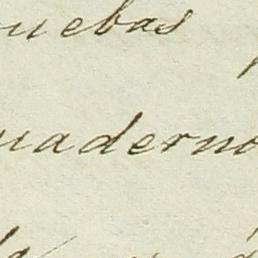 uebas
uaderno